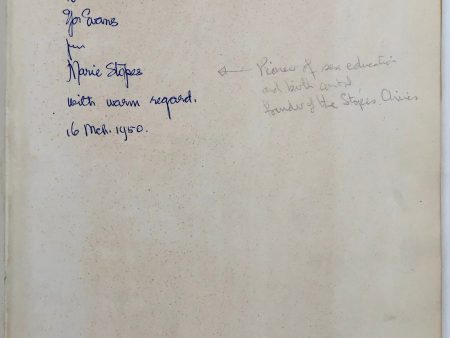 Ifor Evans
from
Marie Stopes
with warm regard.
16 Mch. 1950.
Pioneer of sex education
and birth control
founder of the Stopes Clinics